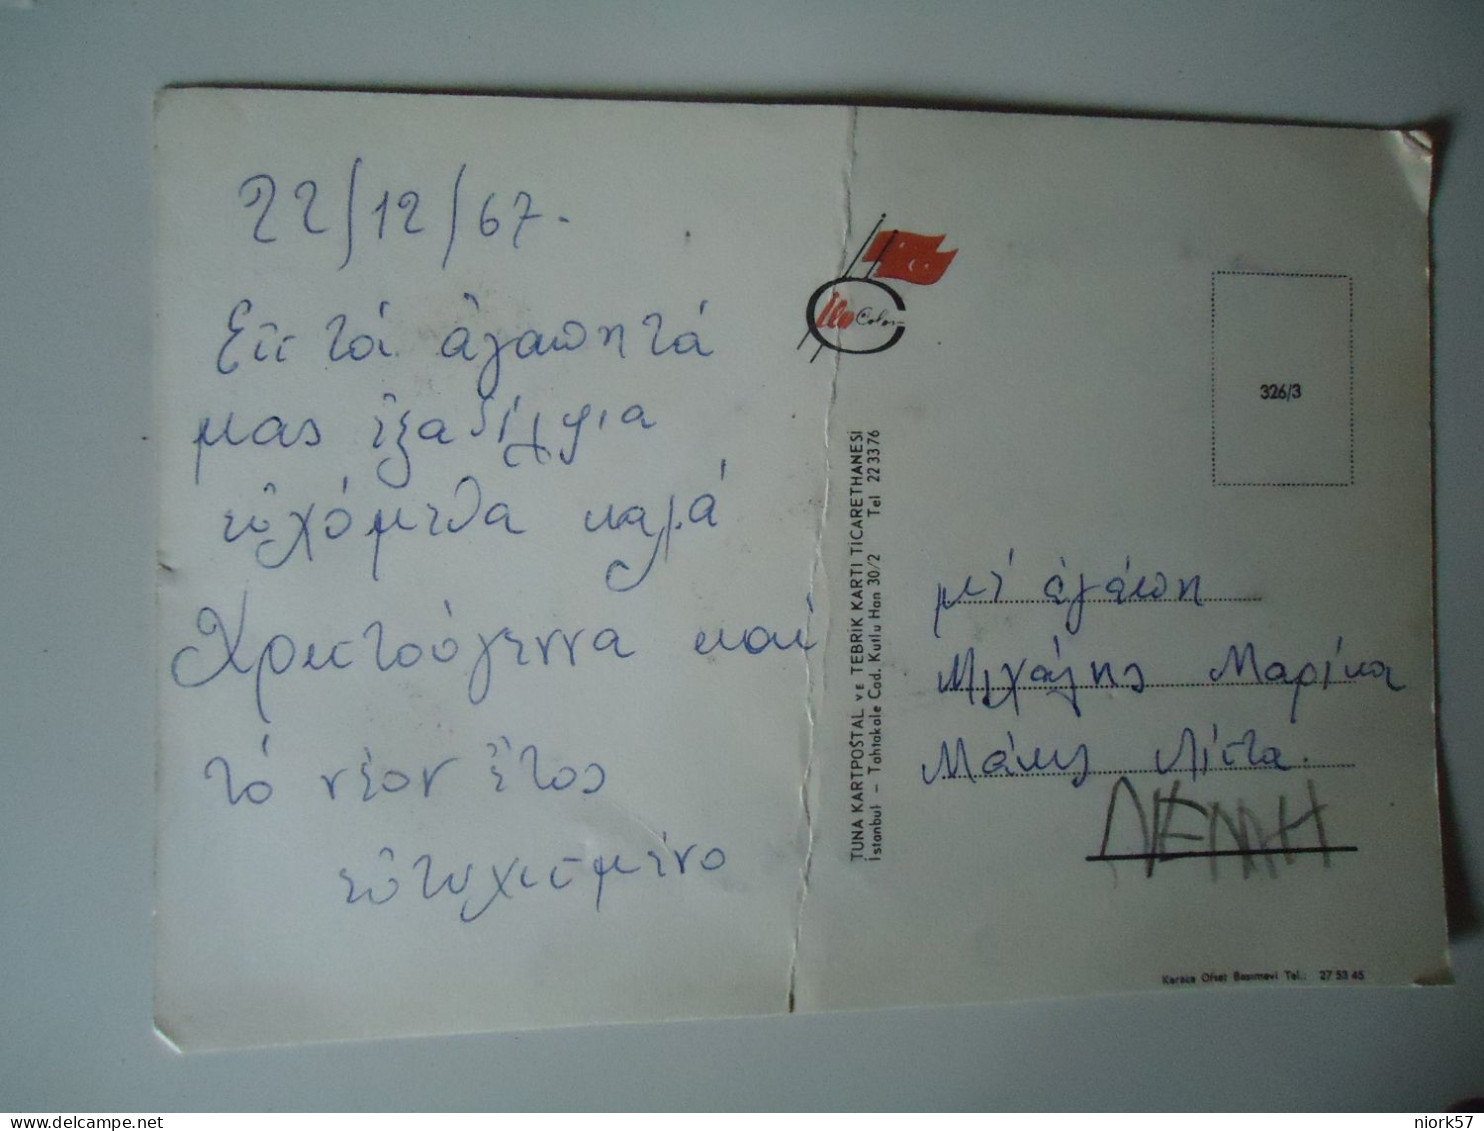 22/12/67.
Εἰς τά ἀγαπητά
μας ἐξαδέλφια
εὐχόμεθα καλά
Χριστούγεννα καί
τό νέον ἔτος
εὐτυχισμένο
ilo Color
326/3
TUNA KARTPOSTAL ve TEBRİK KARTI TİCARETHANESİ
İstanbul – Tahtakale Cad. Kutlu Han 30/2 Tel 22 33 76
μέ ἀγάπη
Μιχάλης Μαρίκα
Μάκης Λίτσα.
ΛΕΛΛΗ
Karaca Ofset Basımevi Tel.: 27 53 45
niork57